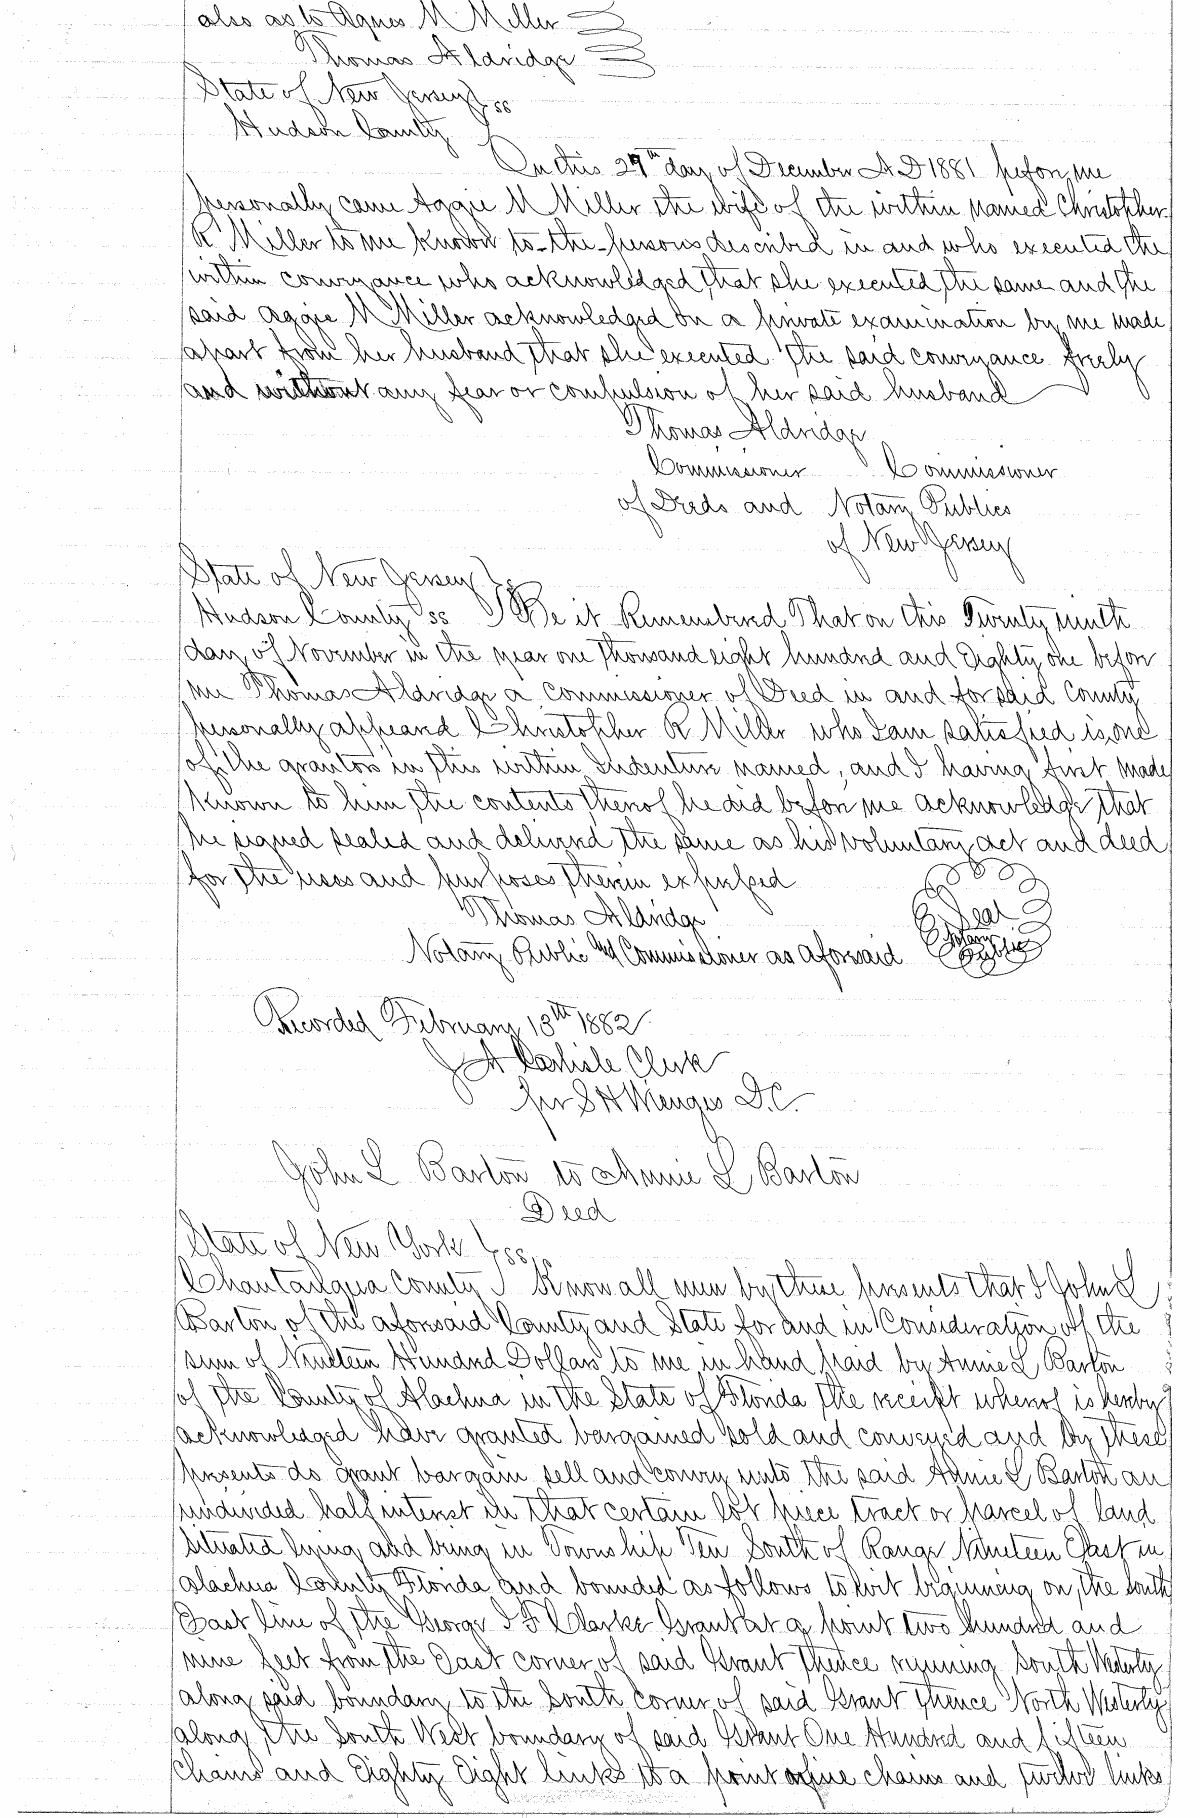 also as to Agnes M Miller
Thomas Aldridge
State of New Jersey } ss
Hudson County
On this 29th day of December A D 1881 before me
personally came Aggie M Miller the wife of the within named Christopher
R Miller to me known to the persons described in and who executed the
within conveyance who acknowledged that she executed the same and the
said Aggie M Miller acknowledged on a private examination by me made
apart from her husband that she executed the said conveyance freely
and without any fear or compulsion of her said husband
Thomas Aldridge
Commissioner Commissioner
of Deeds and Notary Publics
of New Jersey
State of New Jersey }
Hudson County ss } Be it Remembered That on this Twenty ninth
day of November in the year one Thousand eight hundred and Eighty one before
me Thomas Aldridge a Commissioner of Deed in and for said County
personally appeared Christopher R Miller who I am satisfied is one
of the grantors in this within Indenture named, and I having first made
known to him the contents thereof he did before me acknowledge that
he signed sealed and delivered the same as his voluntary act and deed
for the uses and purposes therein expressed
Thomas Aldridge
Seal
Notary Public and Commissioner as aforesaid
Notary
Public
Recorded February 13th 1882
J A Carlisle Clerk
per S H Wienges D.C.
John L Barton to Annie L Barton
Deed
State of New York } ss
Chautauqua County } Know all men by these presents that I John L
Barton of the aforesaid County and State for and in Consideration of the
sum of Nineteen Hundred Dollars to me in hand paid by Annie L Barton
of the County of Alachua in the State of Florida the receipt whereof is hereby
acknowledged have granted bargained sold and conveyed and by these
presents do grant bargain sell and convey unto the said Annie L Barton an
undivided half interest in that certain lot piece tract or parcel of land
situated lying and being in Township Ten South of Range Nineteen East in
Alachua County Florida and bounded as follows to wit beginning on the South
East line of the George I F Clarke Grant at a point two hundred and
nine feet from the East corner of said Grant thence running South Westerly
along said boundary to the South corner of said Grant thence North Westerly
along the South West boundary of said Grant One Hundred and fifteen
Chains and Eighty Eight links to a point nine chains and twelve links